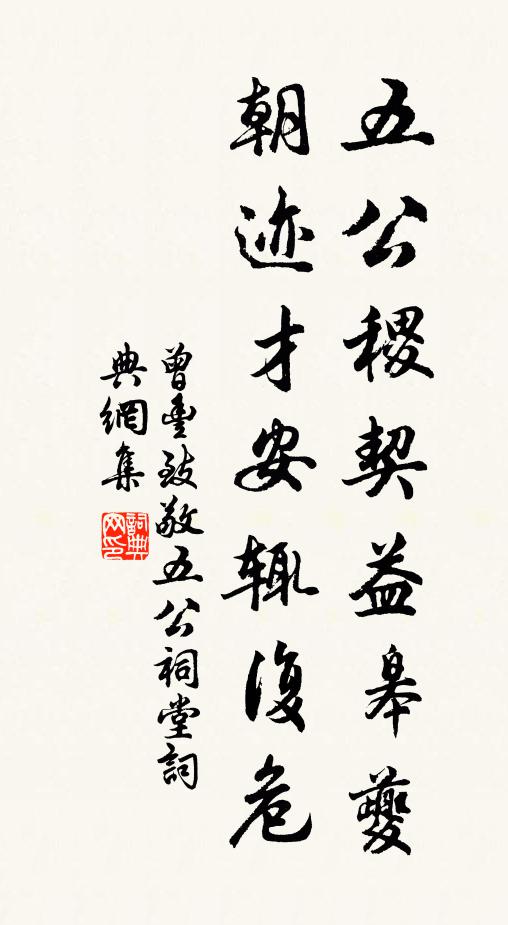 五公稷契益皋夔
朝迹才安辄復危
曾豊致敬五公祠堂詞
典網集
詞典
网印